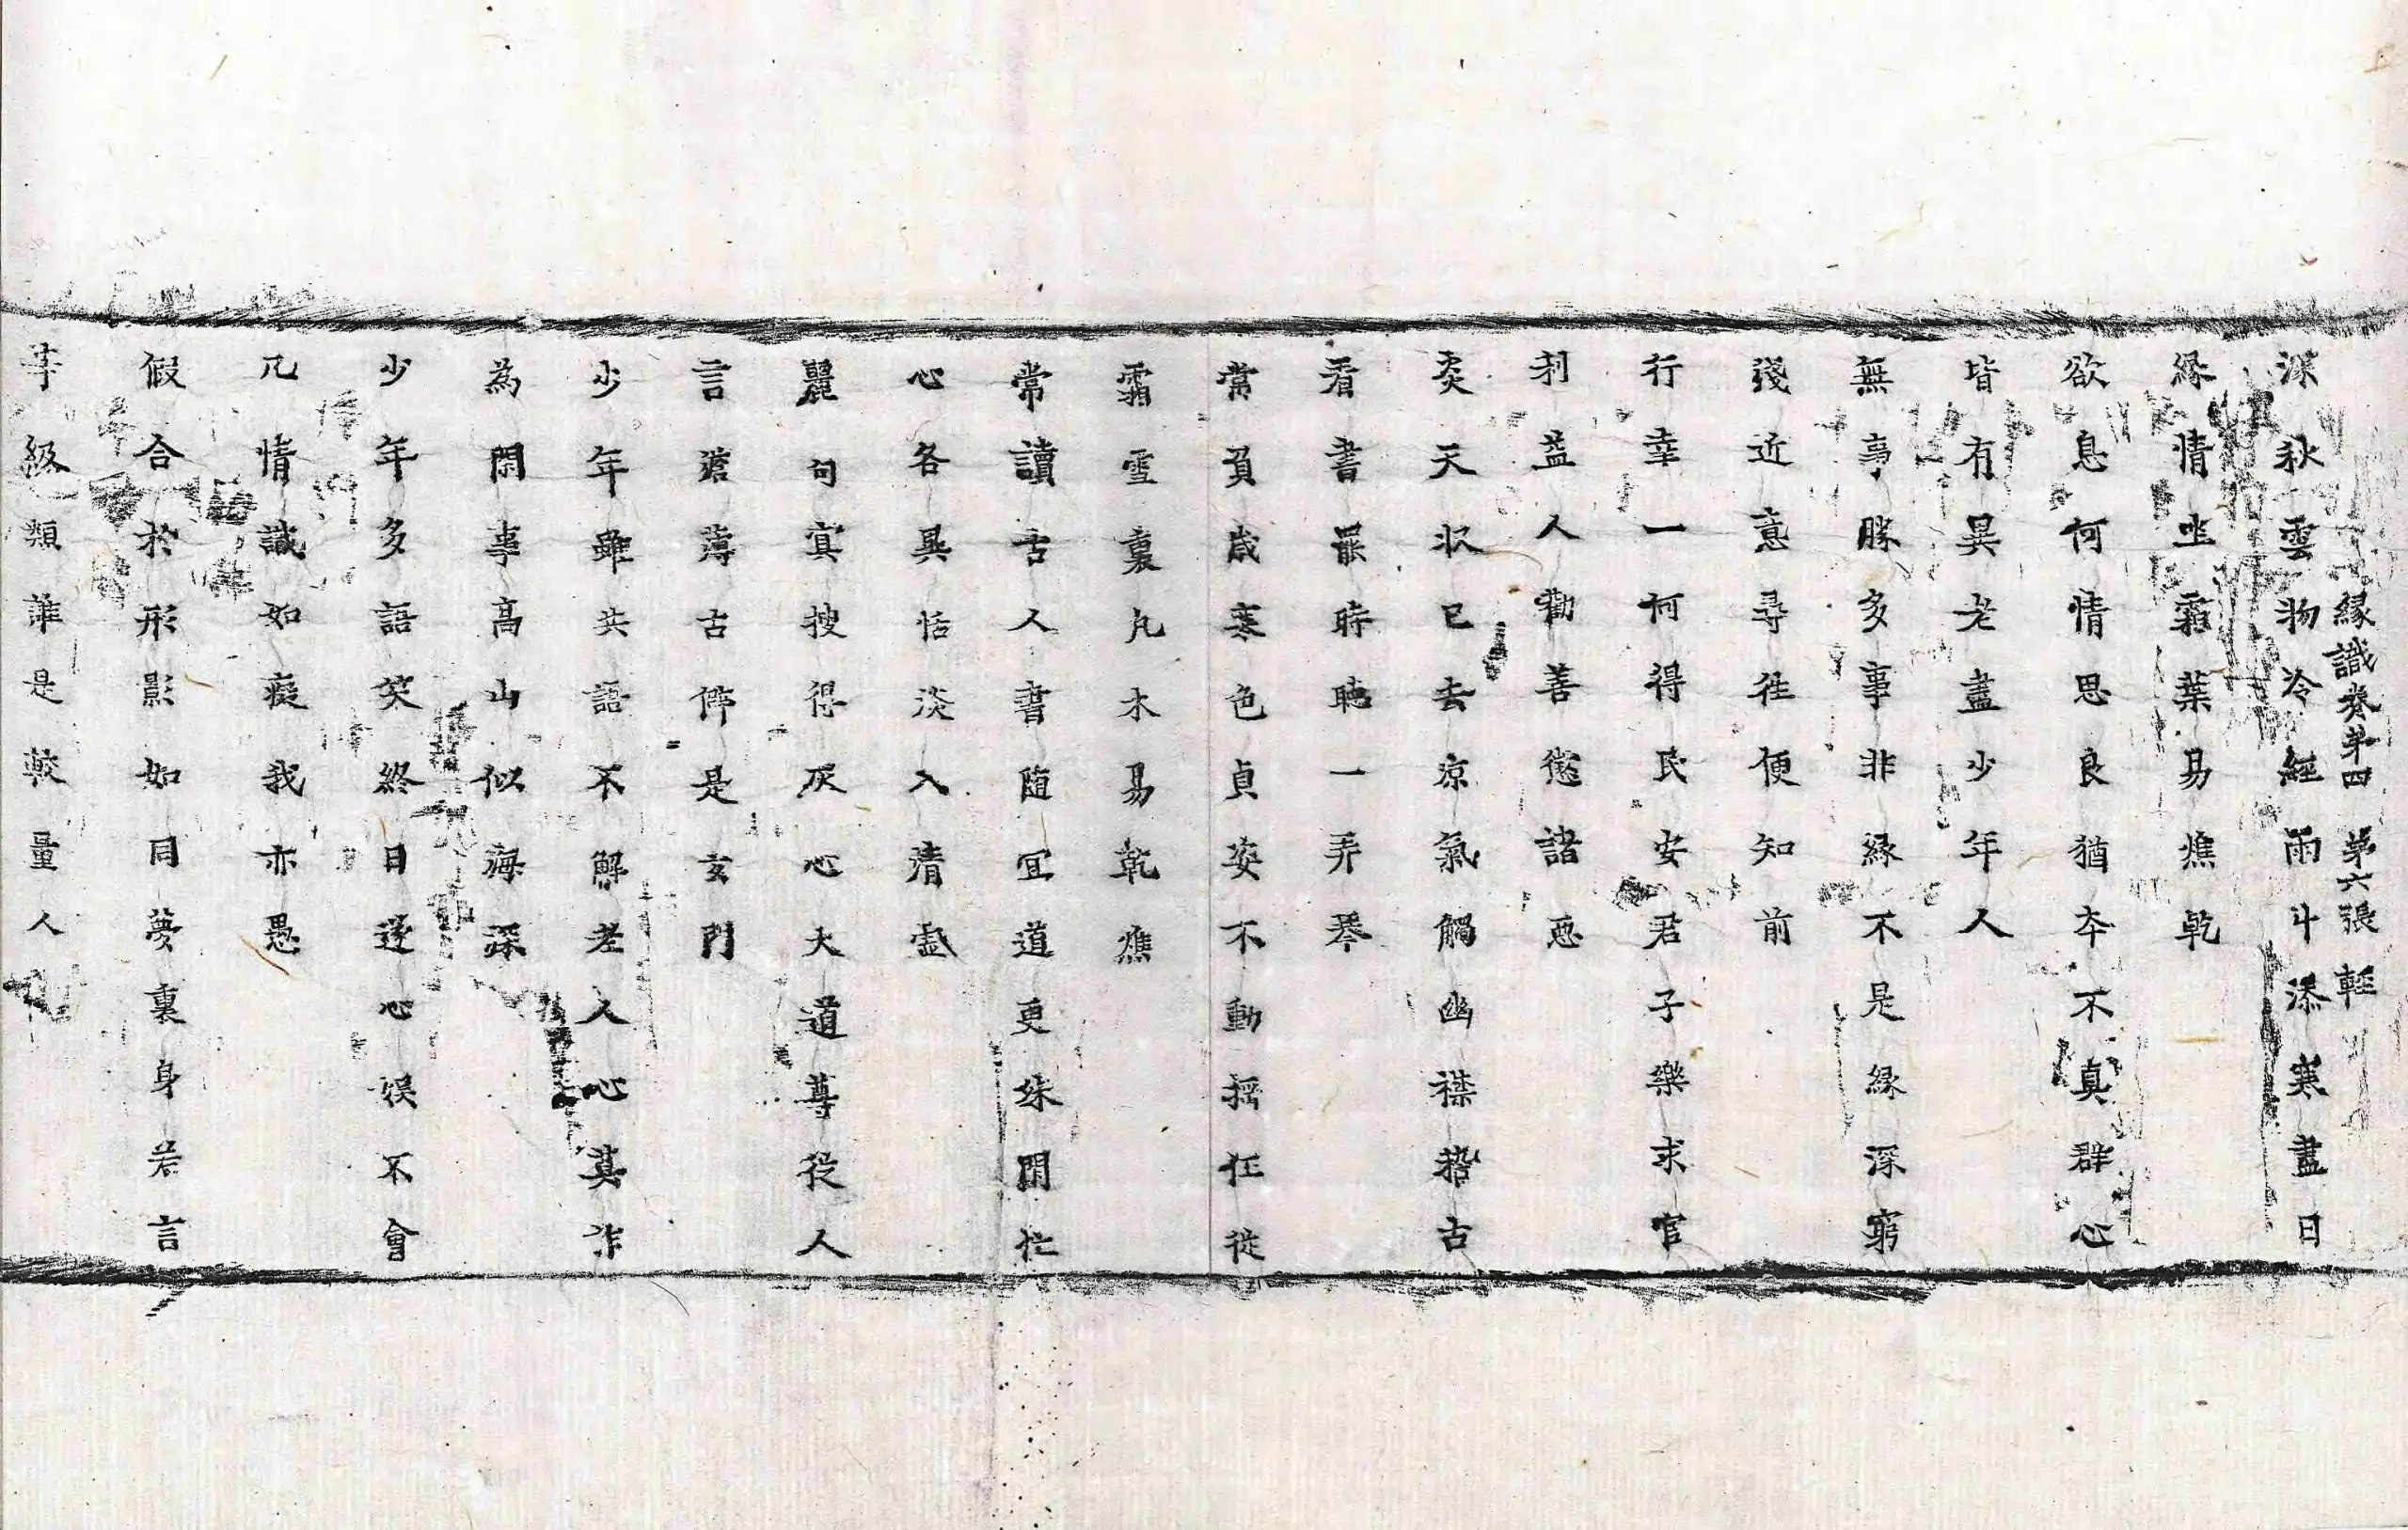 緣識卷第四　第六張　輕
深秋雲物冷經雨斗添寒盡日
緣情坐霜葉易燋乾
欲息何情思良猶夲不真群心
皆有異老盡少年人
無事勝多事非緣不是緣深窮
淺近意尋徃便知前
行幸一何得民安君子樂求官
利益人勸善懲諸惡
炎天狀已去凉氣觸幽襟稽古
看書罷時聴一弄琴
常負歲寒色貞姿不動揺任從
霜雪裏凡木易乾燋
常讀古人書随宜道更殊閑忙
心各異恬淡入清虛
麗句寘搜得灰心大道尊從人
言澹薄古作是玄門
少年雖共語不解老人心莫作
為閑事高山似海深
少年多語笑終日逐心娱不會
凡情識如癡我亦愚
假合於形影如同夢裏身若言
等級類誰是較量人